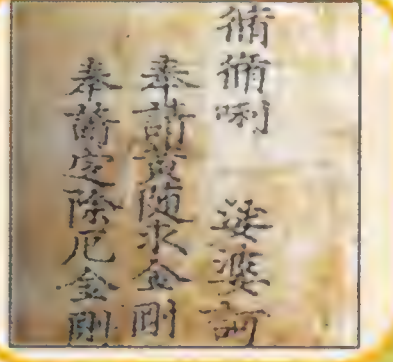 脩脩唎 娑婆訶
奉請黃隨求金剛
奉請定除厄金剛